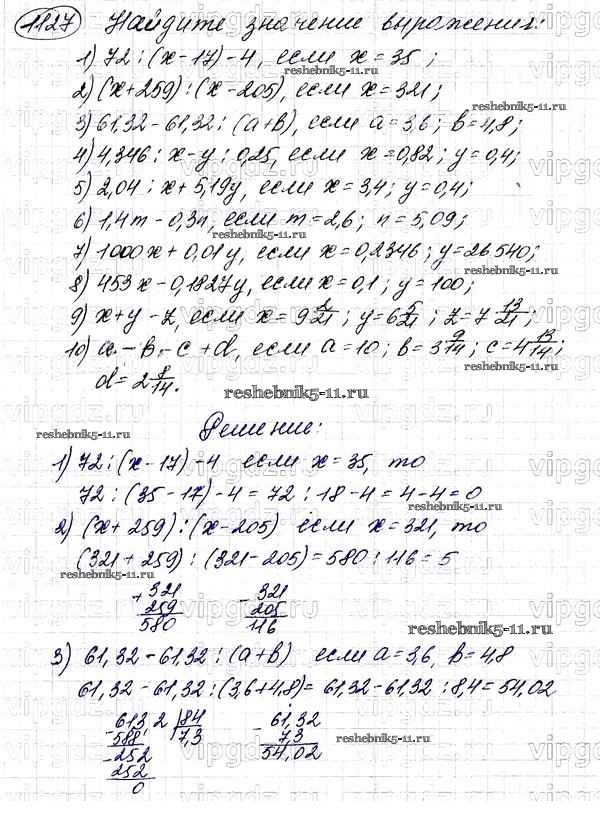 1127 Найдите значение выражения:
1) 72 : (x-17)-4, если x=35;
2) (x+259) : (x-205), если x=321;
3) 61,32-61,32 : (a+b), если a=3,6; b=4,8;
4) 4,346 : x-y : 0,25, если x=0,82; y=0,4;
5) 2,04 : x+5,19y, если x=3,4; y=0,4;
6) 1,4m-0,3n, если m=2,6; n=5,09;
7) 1000x+0,01y, если x=0,2346; y=26540;
8) 453x-0,1827y, если x=0,1; y=100;
9) x+y-z, если x=9 2/21; y=6 5/21; z=7 13/21;
10) a-b-c+d, если a=10; b=3 9/14; c=4 13/14;
d=2 8/14.
Решение:
1) 72 : (x-17)-4 если x=35, то
72 : (35-17)-4=72 : 18-4=4-4=0
2) (x+259) : (x-205) если x=321, то
(321+259) : (321-205)=580 : 116=5
+ 321 - 321
259 205
580 116
3) 61,32-61,32 : (a+b) если a=3,6, b=4,8
61,32-61,32 : (3,6+4,8)=61,32-61,32 : 8,4=54,02
- 613,2 | 84 - 61,32
588 7,3 7,3
- 252 54,02
252
0
reshebnik5-11.ru
vipgdz.ru